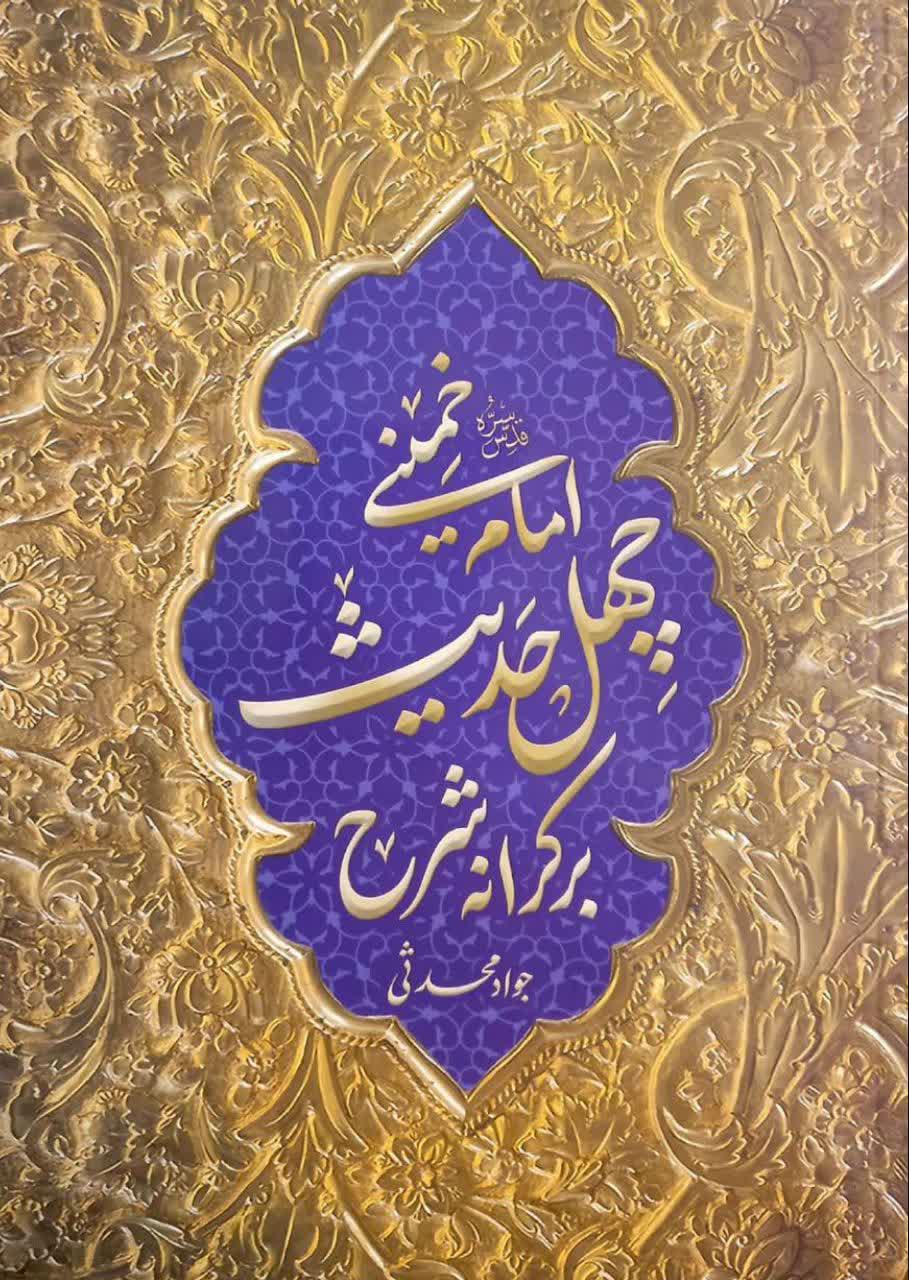 بر کرانه شرح
چهل حدیث
امام خمینی
قدس سره
جواد محدثی